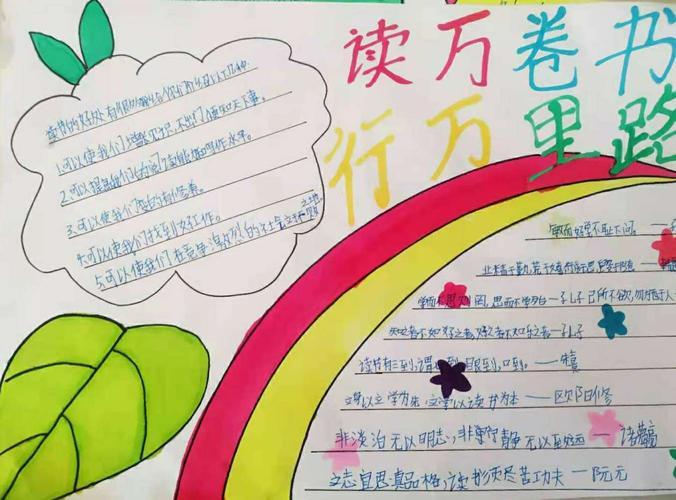 读万卷书
行万里路
读书的好处有很多
1.可以使我们增长见识,不出门便知天下事。
2.可以提高我们的阅读能力和写作水平。
3.可以使我们变的有修养。
4.可以使我们找到好工作。
5.可以使我们在竞争激烈的社会立于
之地
敏而好学不耻下问。
业精于勤,荒于
学而不思则罔,思而不学则殆—孔子 己所不欲,勿施于人
知之者不如好之者,好之者不如乐之者—孔子
读书有三到,谓 到 眼到,口到。——朱熹
立学以读书为本——欧阳修
非淡泊无以明志,非宁静无以致远——诸葛亮
立志宜思真品格,读书须尽苦功夫——阮元